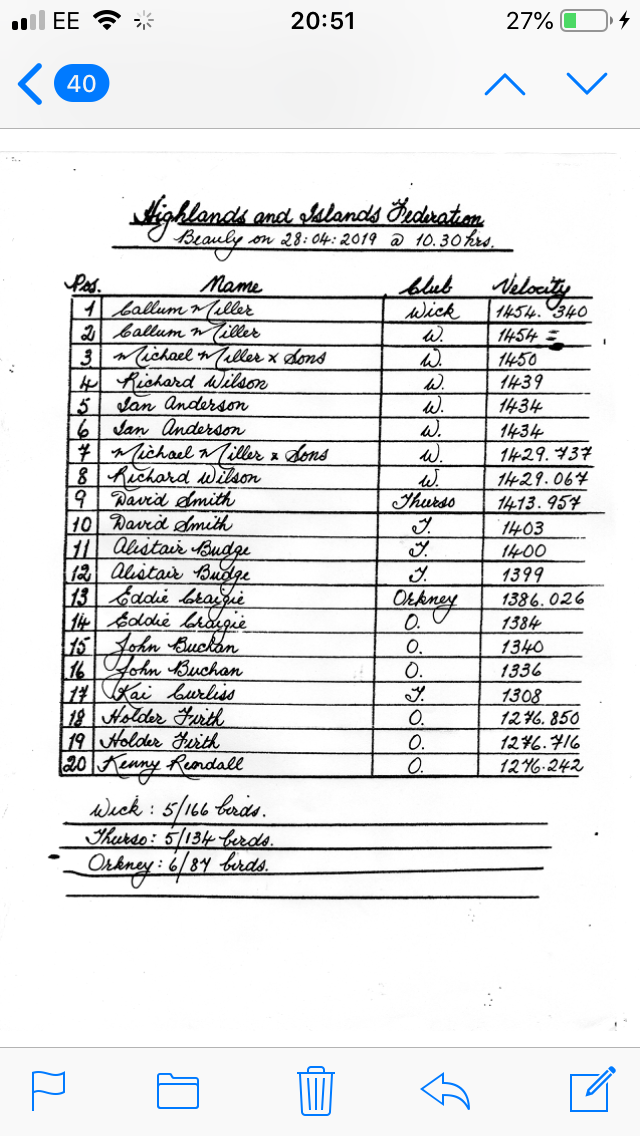 EE 20:51 27%
40
Highlands and Islands Federation
Beauly on 28:04:2019 @ 10.30 hrs.
Pos. Name Club Velocity
1 Callum Miller Wick 1454. 340
2 Callum Miller W. 1454 =
3 Michael Miller x Sons W. 1450
4 Richard Wilson W. 1439
5 Ian Anderson W. 1434
6 Ian Anderson W. 1434
7 Michael Miller x Sons W. 1429.737
8 Richard Wilson W. 1429.067
9 David Smith Thurso 1413.957
10 David Smith T. 1403
11 Alistair Budge T. 1400
12 Alistair Budge T. 1399
13 Eddie Craigie Orkney 1386.026
14 Eddie Craigie O. 1384
15 John Buchan O. 1340
16 John Buchan O. 1336
17 Kai Curliss T. 1308
18 Holder Firth O. 1276.850
19 Holder Firth O. 1276.716
20 Kenny Rendall O. 1276.242
Wick: 5/166 birds.
Thurso: 5/134 birds.
Orkney: 6/87 birds.